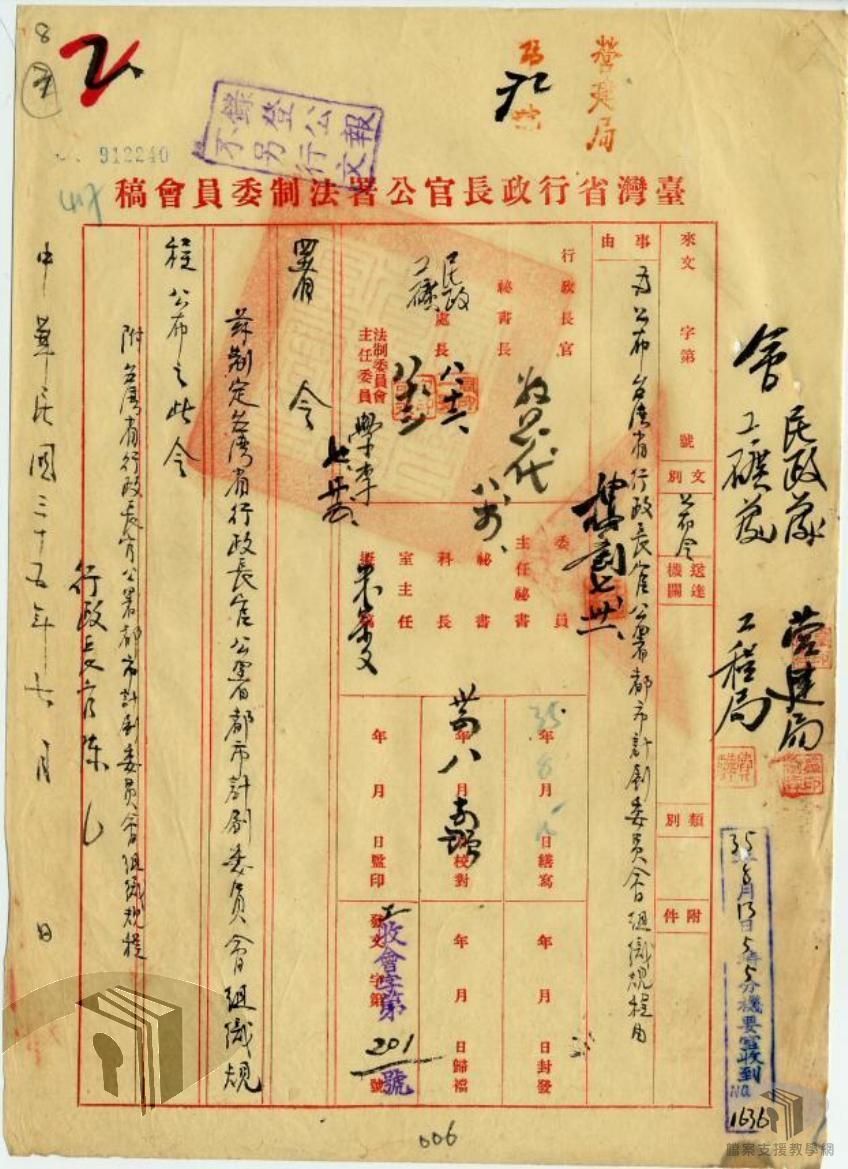 營建局
報公文登行另錄不
912240
臺灣省行政長官公署法制委員會稿
會 民政處 營建局
工礦處 工程局
35年8月13日5時55分機要室收到
NO 1636
來文 字第 號
文別 公布令
送達機關
類別
附件
事由 為公布台灣省行政長官公署都市計劃委員會組織規程由
行政長官
秘書長
民政
工礦
處長
法制委員會
主任委員
委員
主任秘書
秘書
科長
室主任
擬稿
35年8月 日繕寫
年八月 校對
年 月 日監印
年 月 日封發
年 月 日歸檔
發文 字第 號
收會字第201號
署 令
茲制定台灣省行政長官公署都市計劃委員會組織規
程公布之此令
附台灣省行政長官公署都市計劃委員會組織規程
行政長官陳
中華民國三十五年七月 日
006
8
檔案支援教學網